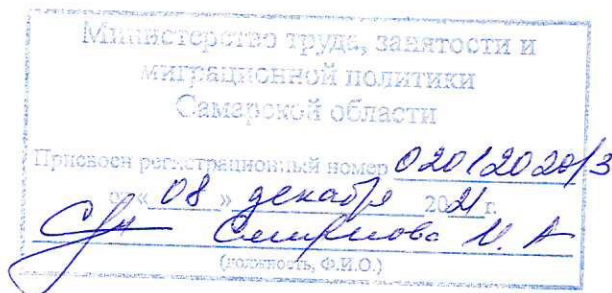 Министерство труда, занятости и
миграционной политики
Самарской области
Присвоен регистрационный номер 02012020/3
от « 08 » декабря 2021 г.
Смирнова И. А
(должность, Ф.И.О.)